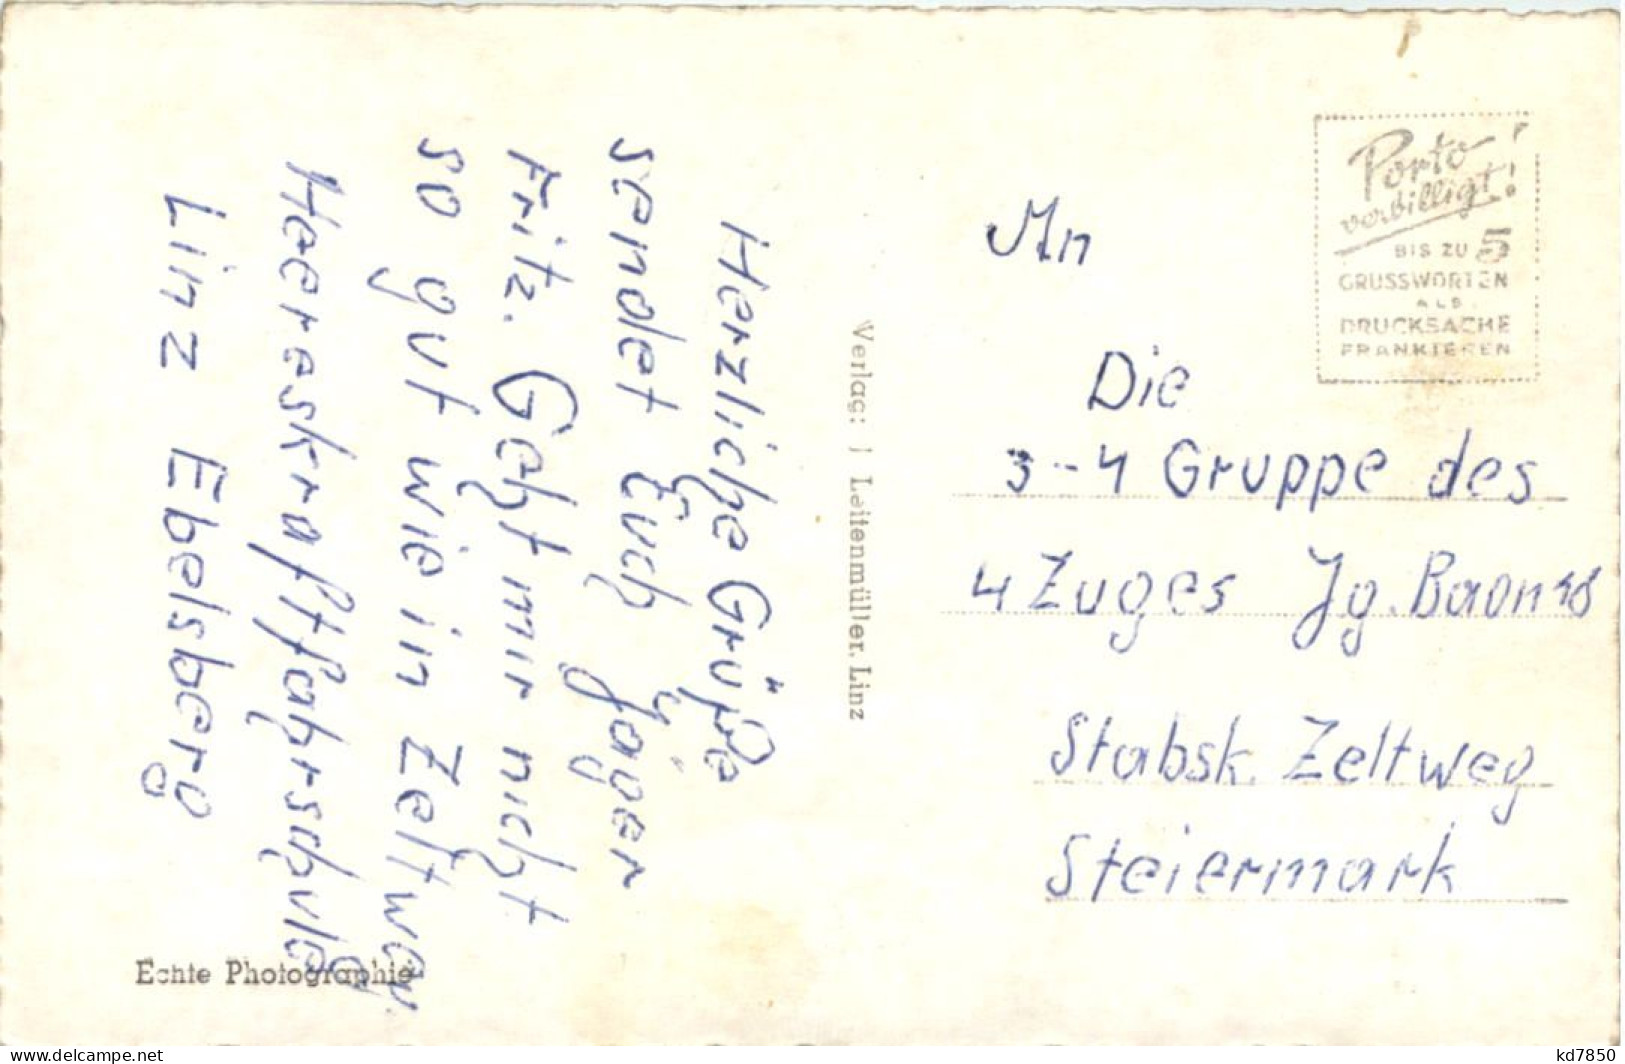 Herzliche Grüße
sendet Euch Jäger
Fritz. Geht mir nicht
so gut wie in Zeltweg.
Heereskraftfahrschule
Linz Ebelsberg
Echte Photographie
Verlag: J Leitenmüller, Linz
Porto
verbilligt!
BIS ZU 5
GRUSSWORTEN
ALS
DRUCKSACHE
FRANKIEREN
An
Die
3-4 Gruppe des
4 Zuges Jg. Baon 18
Stabsk. Zeltweg
Steiermark
kd7850
https://www.delcampe.net